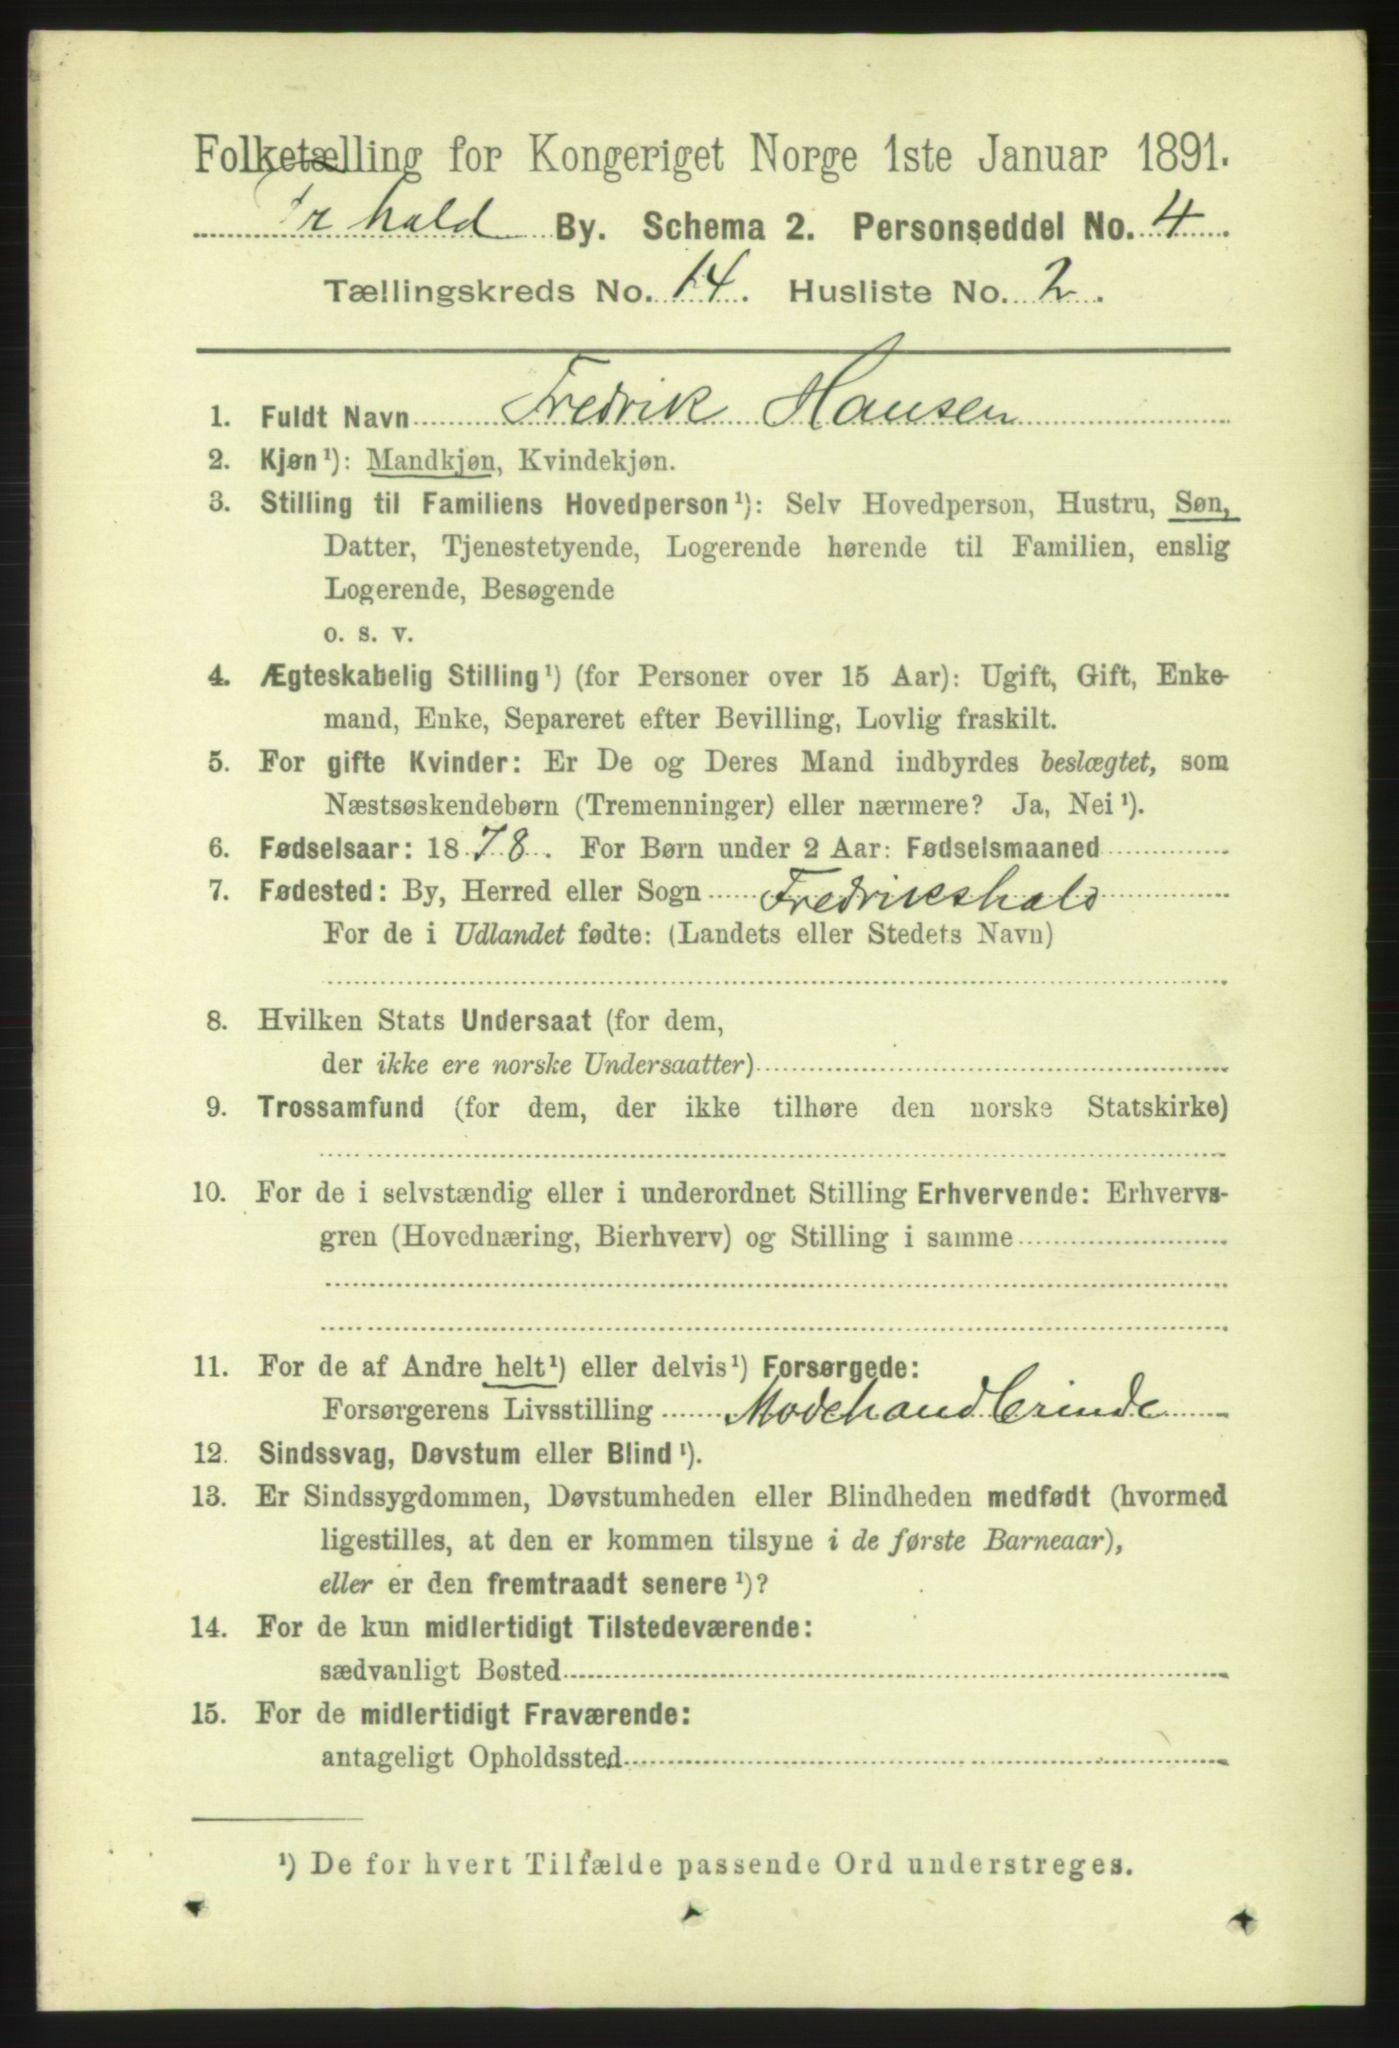 Folketælling for Kongeriget Norge 1ste Januar 1891.
Fr hald By. Schema 2. Personseddel No. 4.
Tællingskreds No. 14. Husliste No. 2.
1. Fuldt Navn Fredrik Hansen
2. Kjøn¹): Mandkjøn, Kvindekjøn.
3. Stilling til Familiens Hovedperson¹): Selv Hovedperson, Hustru, Søn,
Datter, Tjenestetyende, Logerende hørende til Familien, enslig
Logerende, Besøgende
o. s. v.
4. Ægteskabelig Stilling¹) (for Personer over 15 Aar): Ugift, Gift, Enke-
mand, Enke, Separeret efter Bevilling, Lovlig fraskilt.
5. For gifte Kvinder: Er De og Deres Mand indbyrdes beslægtet, som
Næstsøskendebørn (Tremenninger) eller nærmere? Ja, Nei¹).
6. Fødselsaar: 1878. For Børn under 2 Aar: Fødselsmaaned
7. Fødested: By, Herred eller Sogn Fredrikshald
For de i Udlandet fødte: (Landets eller Stedets Navn)
8. Hvilken Stats Undersaat (for dem,
der ikke ere norske Undersaatter)
9. Trossamfund (for dem, der ikke tilhøre den norske Statskirke)
10. For de i selvstændig eller i underordnet Stilling Erhvervende: Erhvervs-
gren (Hovednæring, Bierhverv) og Stilling i samme
11. For de af Andre helt¹) eller delvis¹) Forsørgede:
Forsørgerens Livsstilling Modehandlerinde
12. Sindssvag, Døvstum eller Blind¹).
13. Er Sindssygdommen, Døvstumheden eller Blindheden medfødt (hvormed
ligestilles, at den er kommen tilsyne i de første Barneaar),
eller er den fremtraadt senere¹)?
14. For de kun midlertidigt Tilstedeværende:
sædvanligt Bosted
15. For de midlertidigt Fraværende:
antageligt Opholdssted
¹) De for hvert Tilfælde passende Ord understreges.